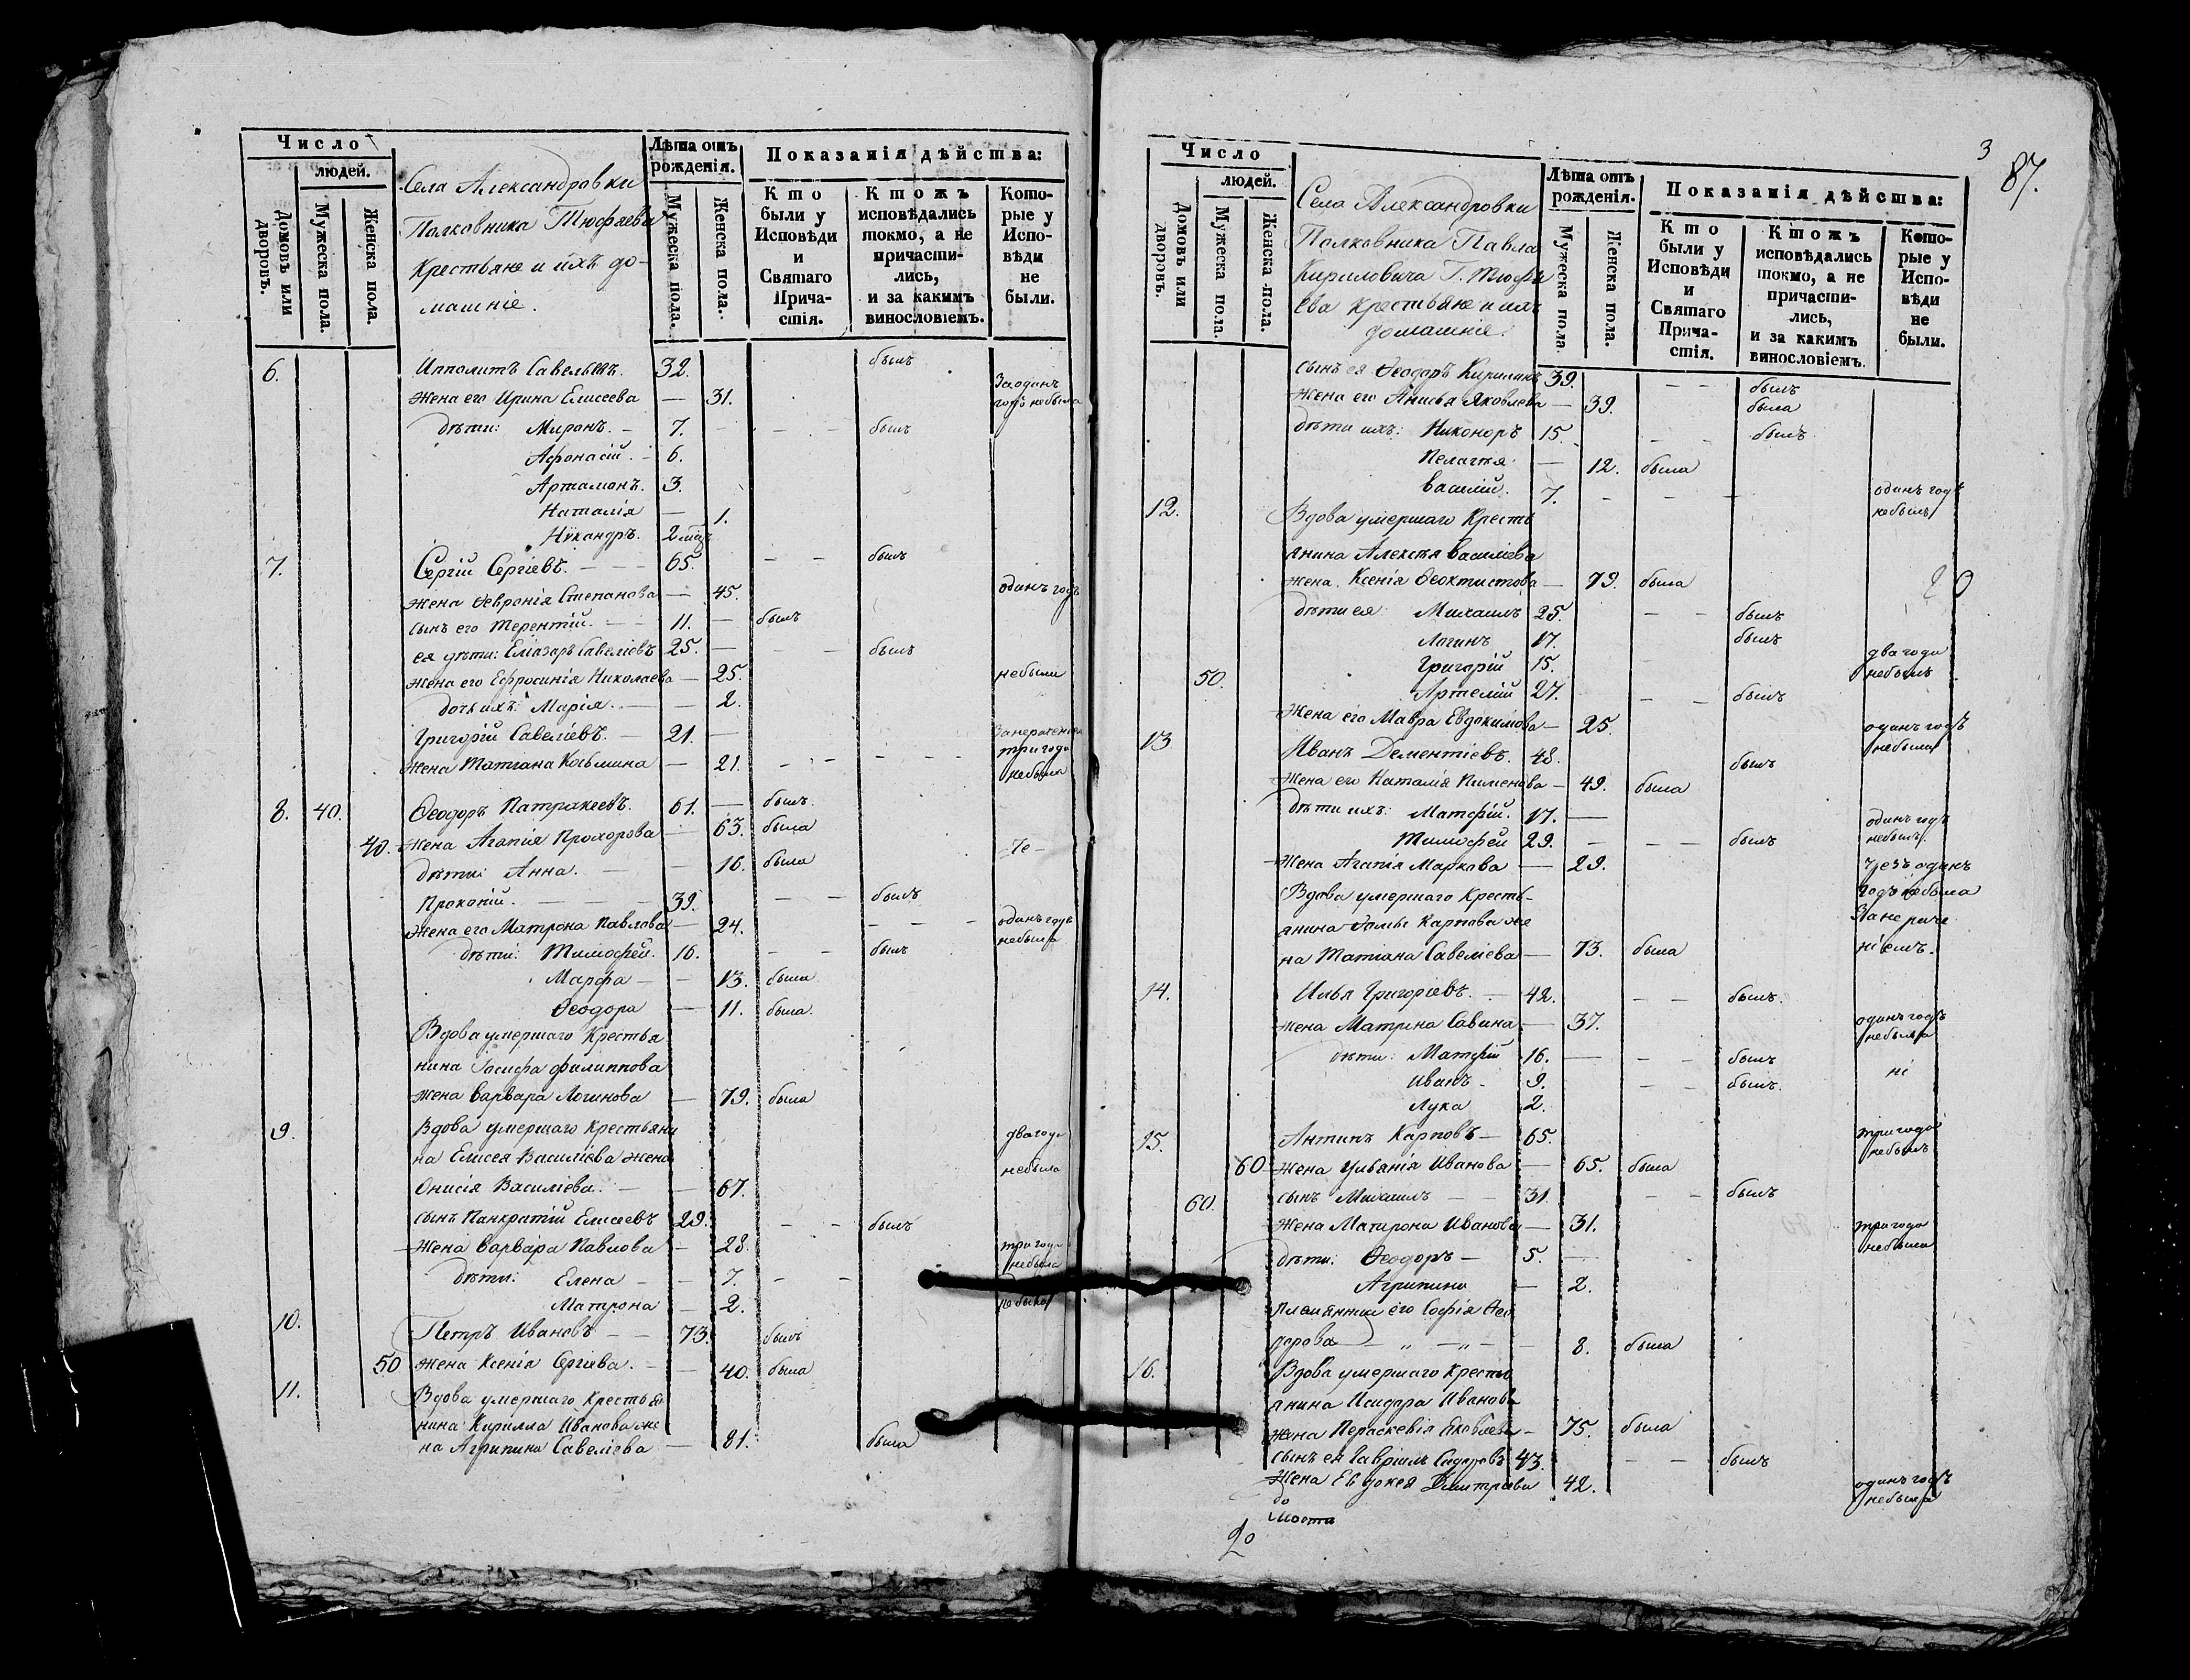 Число
людей.
Домовъ или дворовъ.
Мужеска пола.
Женска пола.
Села Александровки
Полковника Тюфяева
Крестьяне и ихъ до-
машніе.
Лѣта отъ рожденія.
Мужеска пола.
Женска пола.
Показанія дѣйства:
Кто были у Исповѣди и Святаго Прича-стія.
Ктожъ исповѣдались токмо, а не причасти-лись, и за какимъ винословіемъ.
Кото-рые у Испо-вѣди не были.
6. Ипполитъ Савельевъ. 32. былъ
Жена его Ирина Елисеева — 31. За одинъ годъ небыла
дѣти: Миронъ. - 7. - - - былъ
Афонасій. - 6.
Артамонъ. 3.
Наталія — 1.
Никандръ. 2 мѣс
7. Сергій Сергіевъ. - - - 65. - - былъ
жена Февронія Степанова — 45. одинъ годъ
сынъ его Терентій. - - 11. — былъ
ея дѣти: Еліазаръ Савеліевъ 25. — - - былъ
жена его Ефросинія Николаева — 25. небыли
дочь ихъ: Марія. - — 2.
Григорій Савеліевъ. — 21. —
жена Татіана Козьмина — 21. - - - - - три года небыла
8. 40. Ѳеодоръ Патракеевъ. 61. — былъ.
40. жена Агапія Прохорова — 63. была
дѣти: Анна. — — 16. была
Прокопій. - - - 39. - - былъ
жена его Матрона Павлова — 24. - - - одинъ годъ небыла
дѣти: Тимофей. 16. - - былъ
Марфа — - 13. была
Ѳеодора — 11. была.
Вдова умершаго Крестья
нина Іосифа филиппова
жена варвара Логинова — 79. была
9. Вдова умершаго Крестьяни
на Елисея Василіева жена
Онисія Василіева. — — 67. два года небыла
сынъ Панкратій Елисеевъ 29. - - былъ
Жена варвара Павлова — 28. три года небыла
дѣти: Елена - - 7. - -
Матрона — 2.
10. Петръ Ивановъ - - 73. былъ
50 жена Ксенія Сергіева. - — 40. была
11. Вдова умершаго Крестья
нина Кирилла Иванова же
на Агрипина Савеліева — 81. была
3
87.
Число
людей.
Домовъ или дворовъ.
Мужеска пола.
Женска пола.
Села Александровки
Полковника Павла
Кириловича Г. Тюфя
ева Крестьяне и ихъ
домашніе.
Лѣта отъ рожденія.
Мужеска пола.
Женска пола.
Показанія дѣйства:
Кто были у Исповѣди и Святаго Прича-стія.
Ктожъ исповѣдались токмо, а не причасти-лись, и за какимъ винословіемъ.
Кото-рые у Испо-вѣди не были.
сынъ ея Ѳеодоръ Кирилинъ 39. - - былъ
жена его Анисья Яковлева — 39. была
дѣти ихъ: Никоноръ 15. - - былъ
Пелагея — 12. была
василій. 7. - - - одинъ годъ небылъ
12. Вдова умершаго Кресть
янина Алексѣя Василіева
жена Ксенія Ѳеоктистова — 79. была
дѣти ея: Михаилъ 25. - - былъ
Логинъ 17. былъ
Григорій 15. два года небылъ
50. Артемій 27. - - былъ
жена его Мавра Евдокимова — 25. одинъ годъ небыла
13 Иванъ Дементіевъ. 48. былъ
жена его Наталія Пименова — 49. была
дѣти ихъ: Матфій. 17. — одинъ годъ небылъ
Тимофей 29. - - - былъ
жена Агапія Маркова — 29. чрезъ одинъ годъ небыла
Вдова умершаго Кресть-
янина Фомы Карпова же
на Татіана Савеліева — 73. была
14. Илья Григоріевъ. — 42. - - былъ.
жена Матрина Савина — 37. одинъ годъ небыла
дѣти: Матфій 16. — - - былъ
Иванъ - 9. - - былъ.
Лука 2.
15. Антипъ Карповъ — 65. три года небылъ
60 жена Ульянія Иванова — 65. была
60. сынъ Михаилъ - - 31. - - былъ
жена Матрона Иванова — 31. три года небыла
дѣти: Ѳеодоръ — 5. —
Агрипина — 2.
племянница его Софія Ѳео
дорова — „ — „ — 8. была
16. Вдова умершаго Кресть
янина Исидора Иванова
жена Параскевія Яковлева — 75. была
сынъ ея Гавріилъ Сидоровъ 43. - - былъ
Жена Евдокея Дмитріева 42. одинъ годъ небыла
20